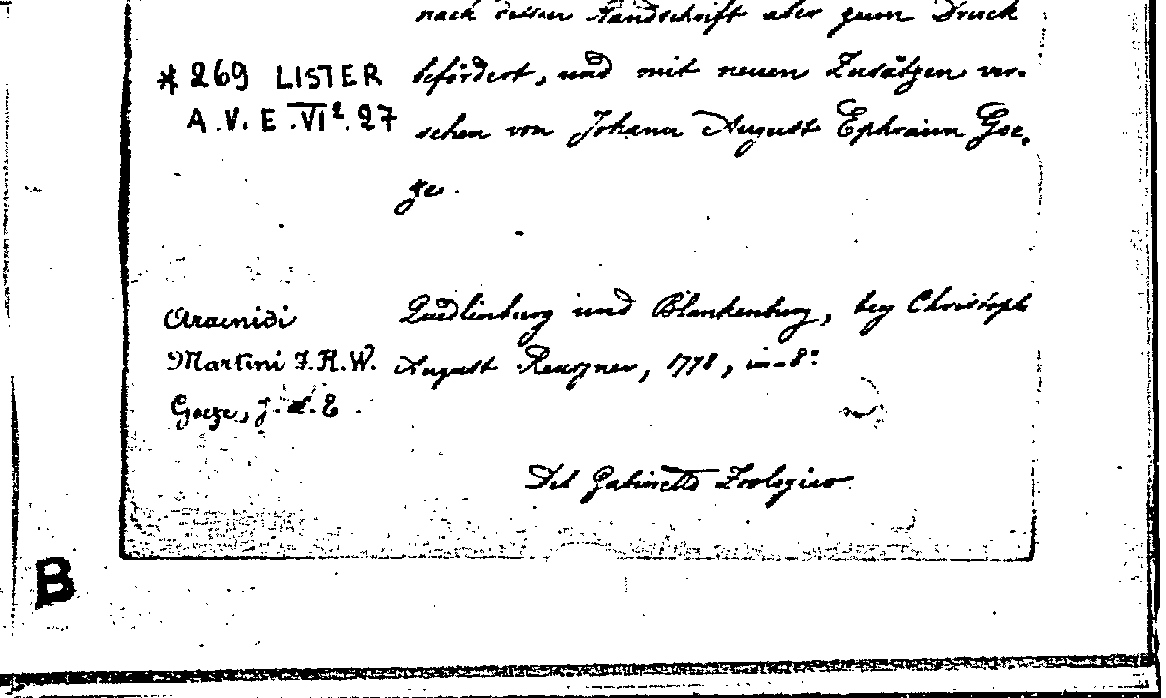 nach dessen Handschrift aber zum Druck
* 269 LISTER
A.V.E.VI². 27
befördert, und mit neuen Zusätzen ver-
sehen von Johann August Ephraim Goe-
ze.
Aracnidi
Martini F.H.W.
Goeze, J. A. E.
Quedlinburg und Blankenburg, bey Christoph
August Reussner, 1778, in-8º
Del Gabinetto Zoologico
B